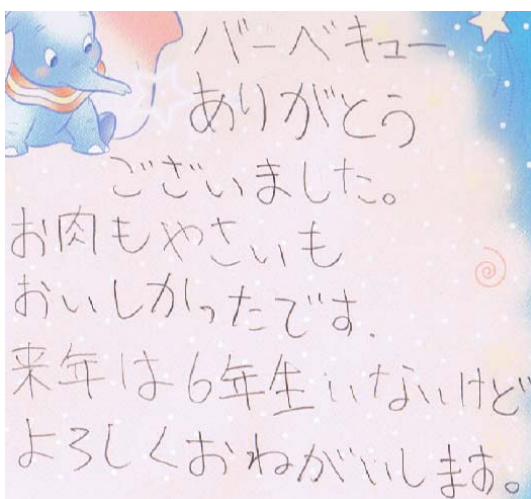 バーベキュー
ありがとう
ございました。
お肉もやさいも
おいしかったです.
来年は6年生いないけど
よろしくおねがいします。